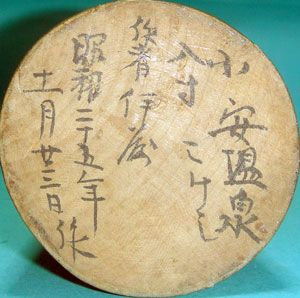 小安温泉
八寸こけし
作者伊藤
昭和二十五年
十一月廿三日作